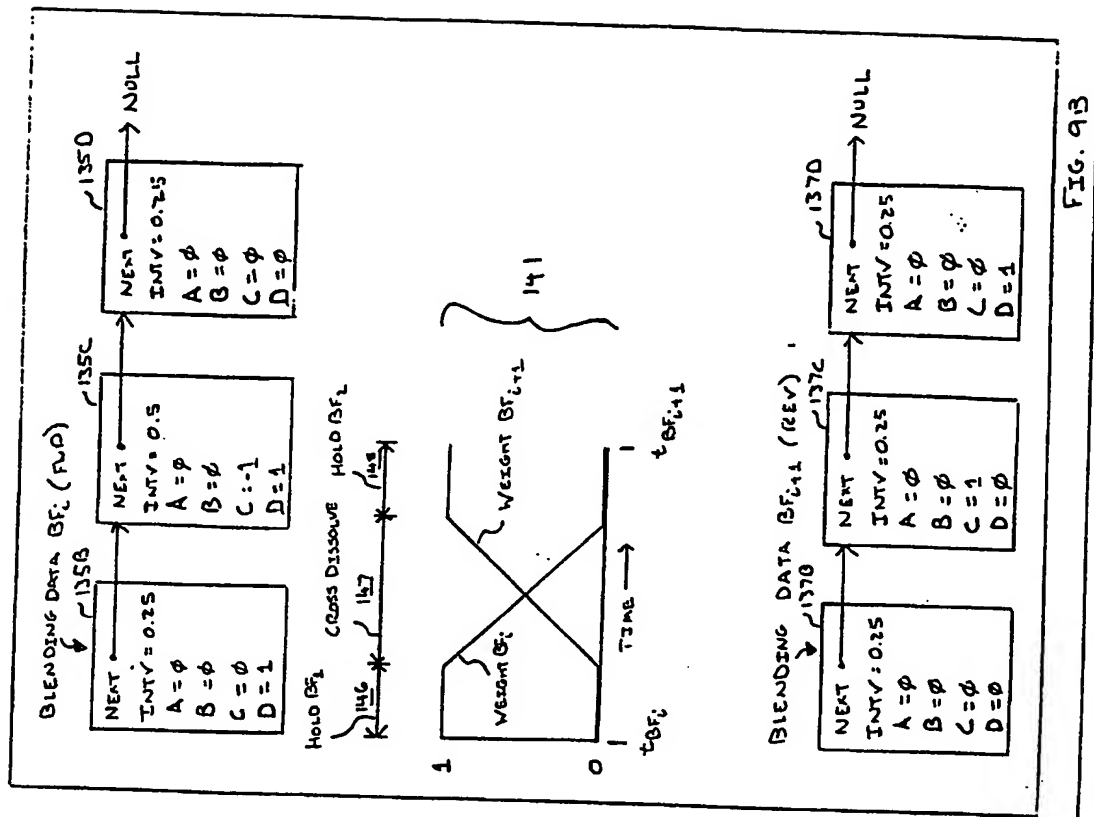 BLENDING DATA BFi (FWD)
135B
NEXT
INTV = 0.25
A = ϕ
B = ϕ
C = ϕ
D = 1
135C
NEXT
INTV = 0.5
A = ϕ
B = ϕ
C = -1
D = 1
135D
NEXT
INTV = 0.25
A = ϕ
B = ϕ
C = ϕ
D = ϕ
NULL
HOLD BF1
CROSS DISSOLVE
HOLD BF2
146
147
148
1
0
WEIGHT BFi
WEIGHT BFi+1
141
tBFi
TIME
tBFi+1
BLENDING DATA BFi+1 (REV)
137B
NEXT
INTV = 0.25
A = ϕ
B = ϕ
C = ϕ
D = ϕ
137C
NEXT
INTV = 0.25
A = ϕ
B = ϕ
C = 1
D = ϕ
137D
NEXT
INTV = 0.25
A = ϕ
B = ϕ
C = ϕ
D = 1
NULL
FIG. 9B